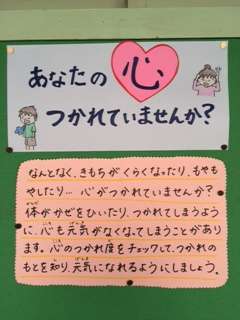 あなたの 心
つかれていませんか?
なんとなく、きもちが くらくなったり、もやも
やしたり… 心がつかれていませんか?
体がかぜをひいたり、つかれてしまうよう
に、心も元気がなくなってしまうことがあり
ます。心のつかれ度をチェックして、つかれの
もとを知り、元気になれるようにしましょう。